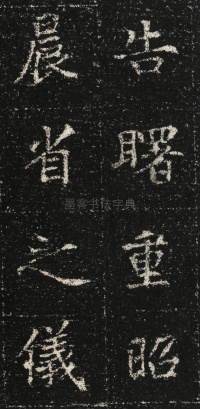 告曙重昭
晨省之儀
墨客书法字典